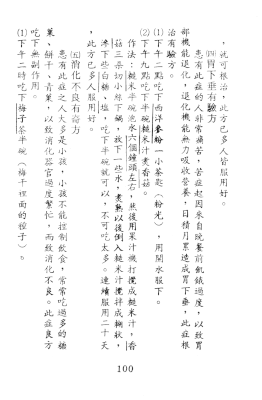 ,就可根治,此方已多人皆服用好。
㈣胃下垂有驗方
患有此症的人非常痛苦,苦症起因來自晚餐前飢餓過度,以致胃
部機能退化,退化機能無力吸收營養,日積月累造成胃下垂,此症根
治有驗方。
⑴下午二點吃下西洋參粉一小茶匙(粉光),用開水服下。
⑵下午九點吃下半碗糙米汁煮香菇。
作法:糙米半碗泡水六個鐘頭左右,然後用果汁機打攪成糙米汁,香
菇三朵切小絲下鍋,放下一些水,煮熟以後倒入糙米汁攪拌成糊狀,
下些白糖、塩,吃下半碗就可以,不可吃太多。連續服用二十天
,此方已多人服用好。
㈤消化不良有奇方
患有此症之人大多是小孩,小孩不能控制飲食,常常吃過多的糖
菓、餅干、青菓,以致消化器官過度繁忙,而致消化不良。此症良方
吃下無副作用。
⑴下午二時吃下梅子茶半碗(梅干裡面的籽子)。
100